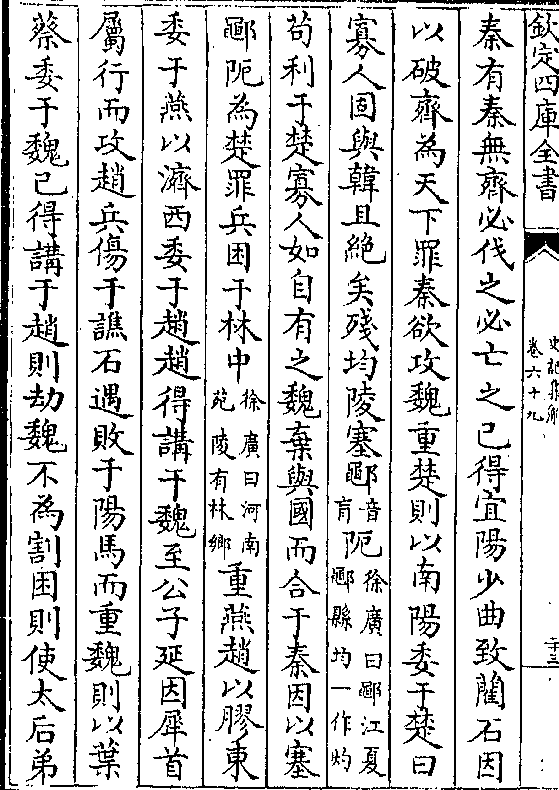 欽定四庫全書
史記集解
卷六十九
二十三
秦有秦無齊必伐之必亡之已得宜陽少曲致藺石因
以破齊為天下罪秦欲攻魏重楚則以南陽委于楚曰
寡人固與韓且絶矣殘均陵塞鄳音盲阨徐廣曰鄳江夏鄳縣均一作灼
苟利于楚寡人如自有之魏棄與國而合于秦因以塞
鄳阨為楚罪兵困于林中徐廣曰河南苑陵有林鄉重燕趙以膠東
委于燕以濟西委于趙趙得講于魏至公子延因犀首
屬行而攻趙兵傷于譙石遇敗于陽馬而重魏則以葉
蔡委于魏已得講于趙則劫魏不為割困則使太后弟